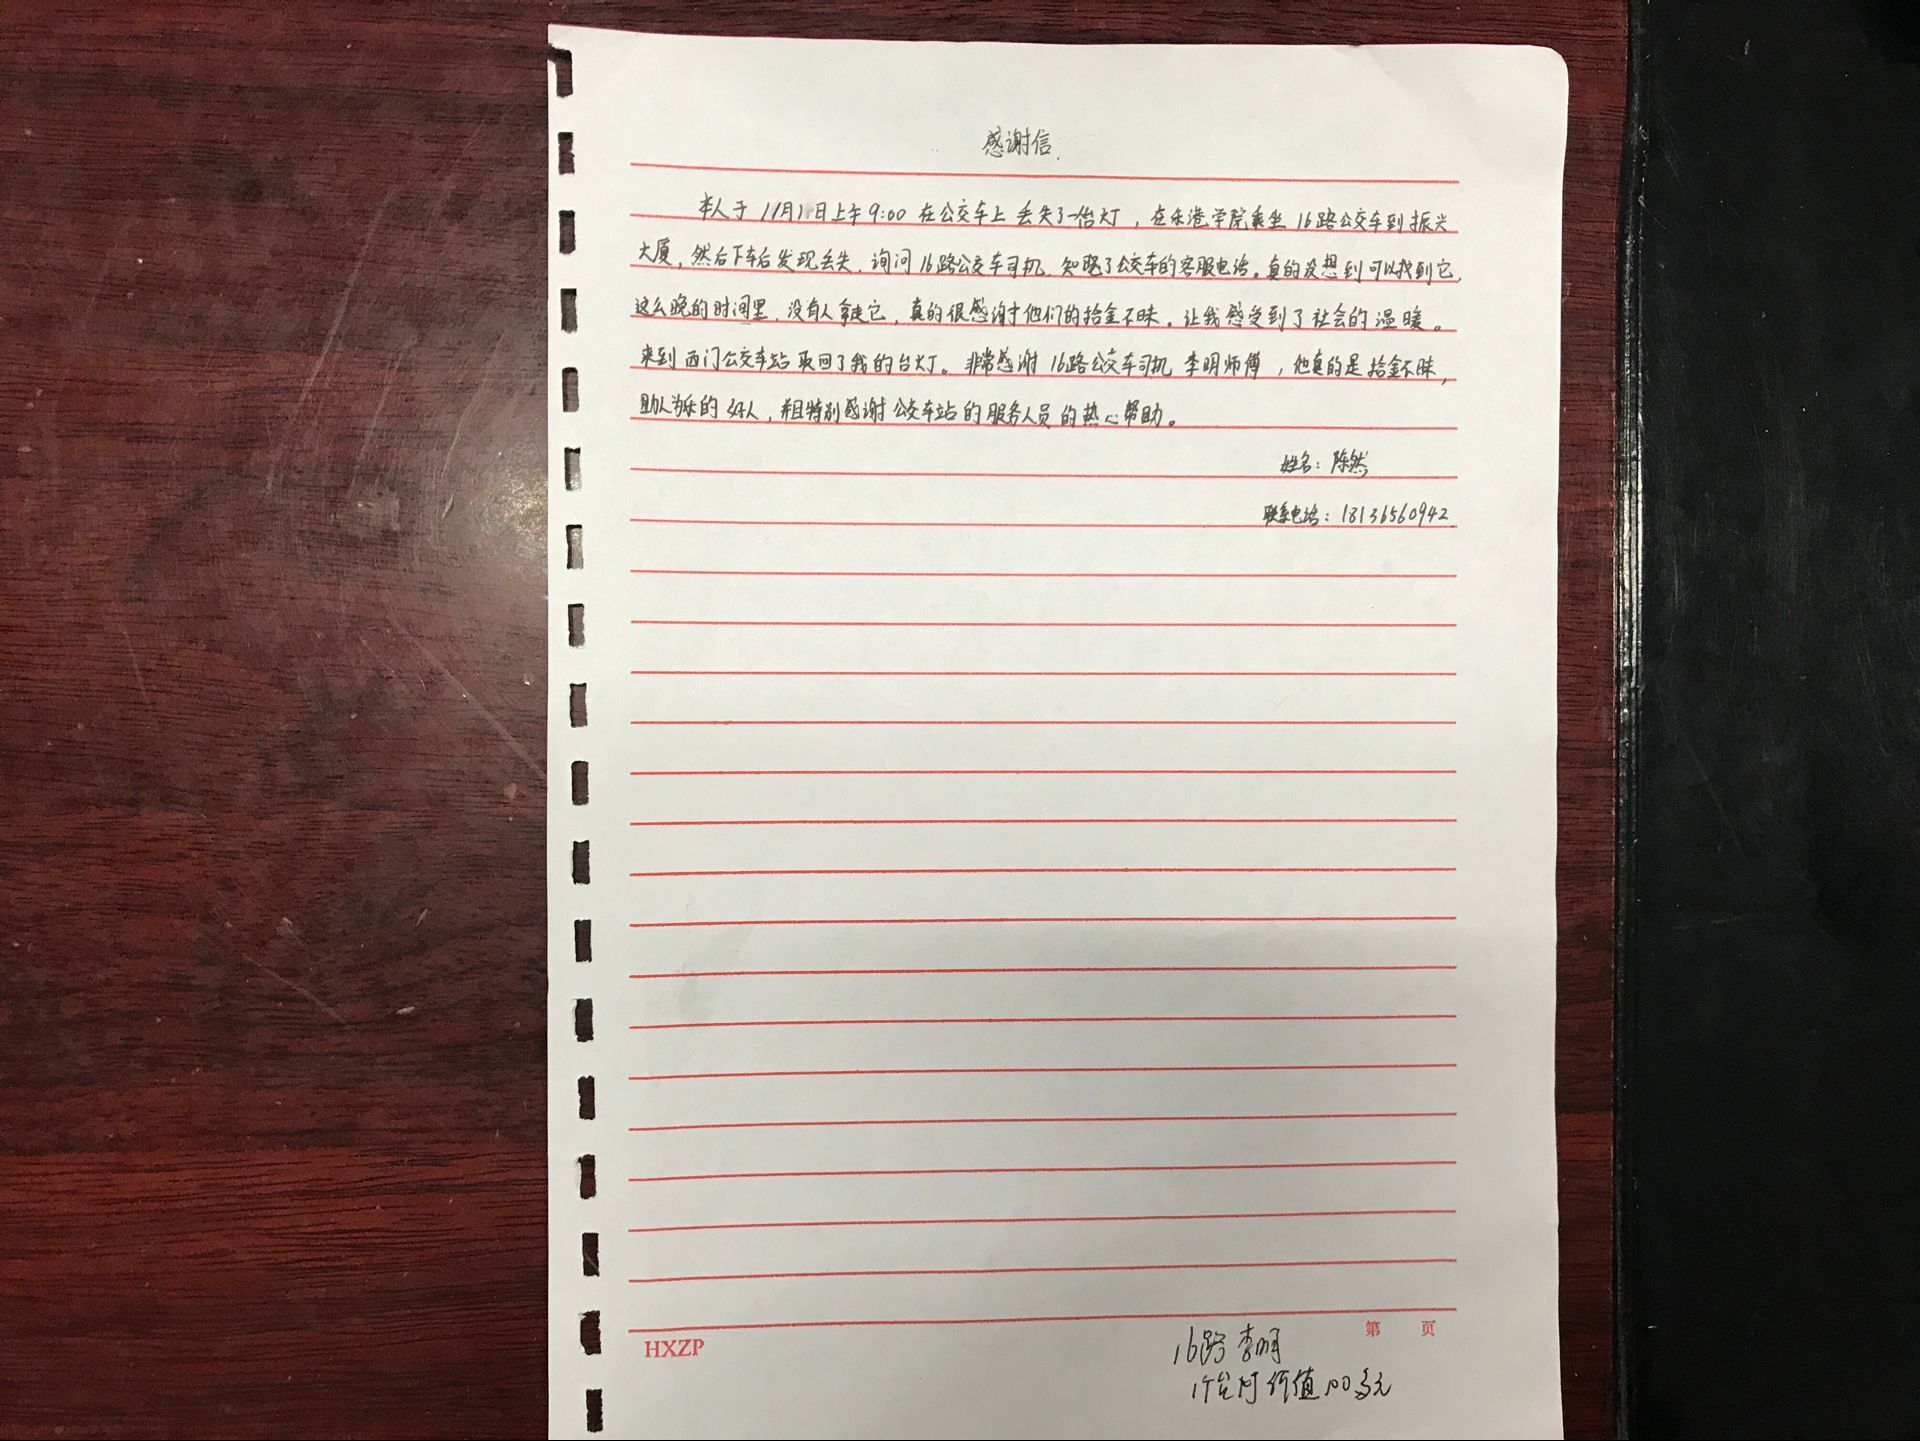 感谢信
本人于11月1日上午9:00在公交车上丢失了一台灯，在乐港学院乘坐16路公交车到振兴
大厦，然后下车后发现丢失，询问16路公交车司机，知晓了公交车的客服电话。真的没想到可以找到它，
这么晚的时间里，没有人拿走它，真的很感谢他们的拾金不昧。让我感受到了社会的温暖。
来到西门公交车站取回了我的台灯。非常感谢16路公交车司机李明师傅，他真的是拾金不昧，
助人为乐的好人，并且特别感谢公交车站的服务人员的热心帮助。
姓名：陈然
联系电话：18136560942
第 页
HXZP
16路李明
1个台灯价值100多元